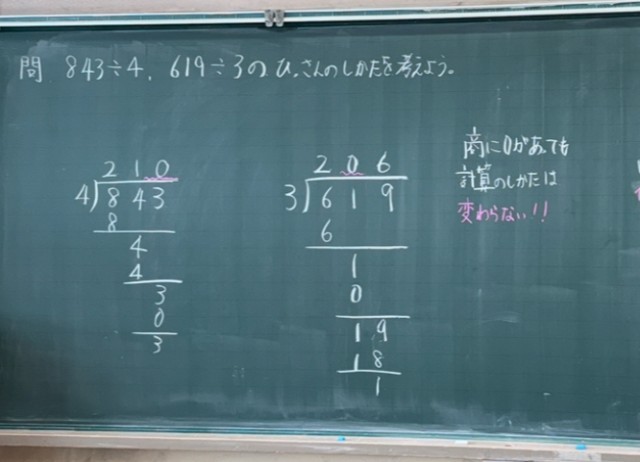 問 843÷4, 619÷3のひっさんのしかたを考えよう。
210
4)843
8
4
4
3
0
3
206
3)619
6
1
0
19
18
1
商に0があっても
計算のしかたは
変わらない!!